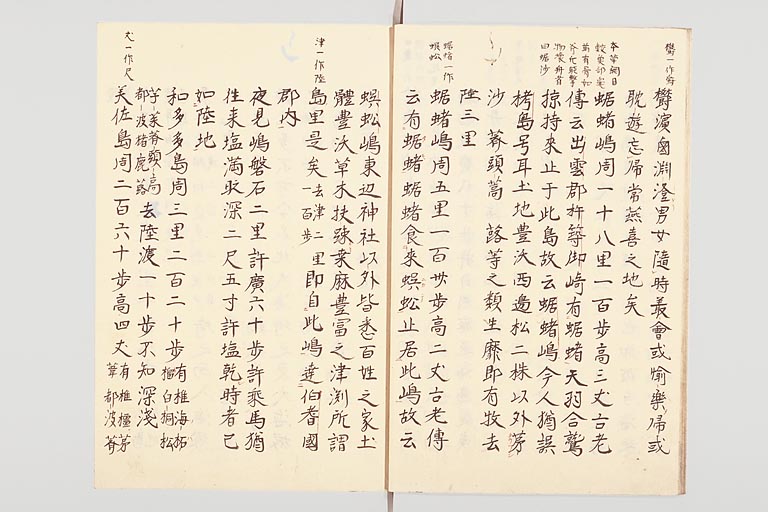 欝濱鹵淵澄男女隨時叢會或愉樂歸或
耽遊忘歸常燕喜之地矣
蜛蝫嶋周一十八里一百步高三丈古老
傳云出雲郡杵築御崎有蜛蝫天羽合鷲
掠持來止于此島故云蜛蝫嶋今人猶誤
栲島号耳土地豊沃西邊松二株以外茅
沙薺頭蒿蕗等之類生靡即有牧去
陸三里
蜛蝫一作
蜈蚣
蜛蝫嶋周五里一百卅步高二丈古老傳
云有蜛蝫蜛蝫食来蜈蚣止居此嶋故云
蜈蚣嶋東辺神社以外皆悉百姓之家土
體豊沃草木扶踈桒麻豊富之津渕所謂
津一作陸
島里是矣去津二里一百步即自此嶋達伯耆國
郡内
夜見嶋磐石二里許廣六十步許乘馬猶
徃来塩満 深二尺五寸許塩乾時者已
如陸地
和多多島周三里二百二十步有椎海柘榴白桐松
芋菜薺頭蒿都波猪鹿蕗去陸渡一十步不知深淺
丈一作尺
美佐島周二百六十步高四丈有椎橿茅葦都波薺